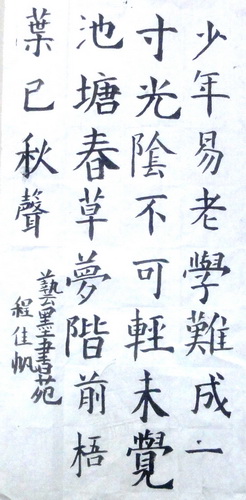 少年易老學難成一
寸光陰不可輕未覺
池塘春草夢階前梧
葉已秋聲
藝墨書苑
程佳帆